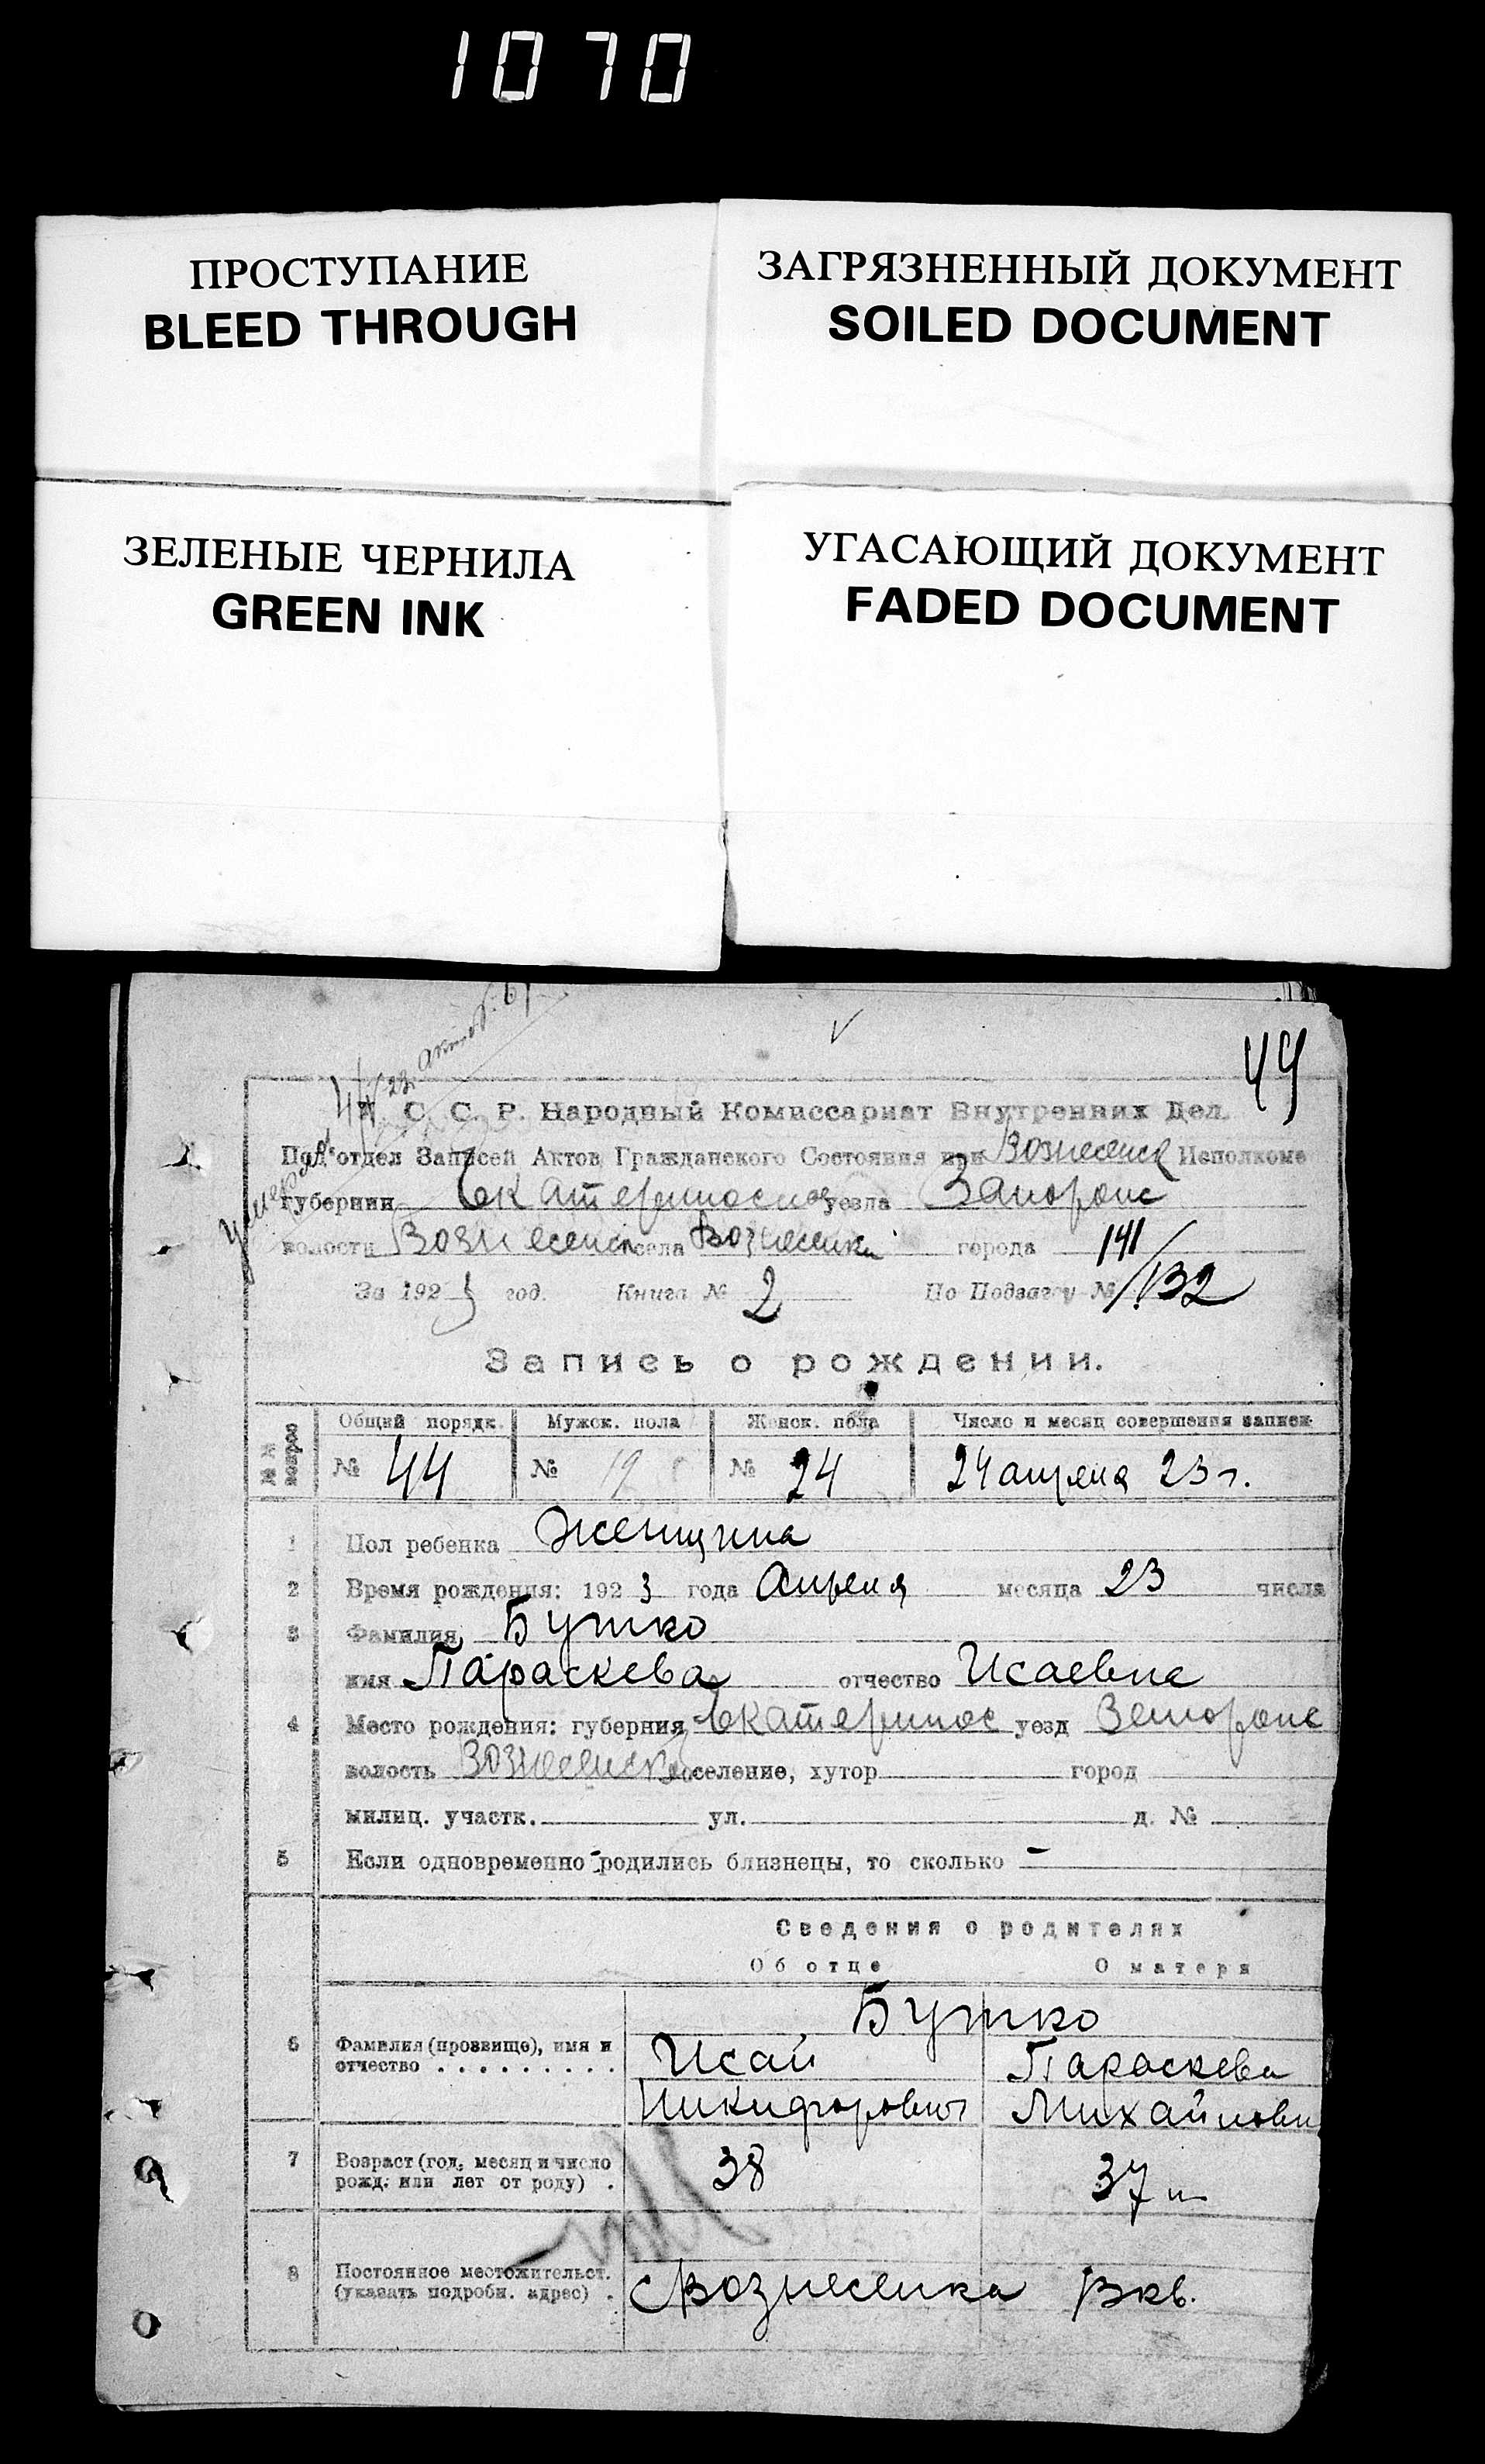 1070
ПРОСТУПАНИЕ
BLEED THROUGH
ЗАГРЯЗНЕННЫЙ ДОКУМЕНТ
SOILED DOCUMENT
ЗЕЛЕНЫЕ ЧЕРНИЛА
GREEN INK
УГАСАЮЩИЙ ДОКУМЕНТ
FADED DOCUMENT
49
С. С. Р. Народный Комиссариат Внутренних Дел.
Подотдел Записей Актов Гражданского Состояния при Вознесенск Исполкоме
губернии Екатеринослов уезда Запорож
волости Вознесенск села Вознесенки города 141
За 1923 год. Книга № 2 По Подзагсу № 132
Запись о рождении.
№№ вопрос Общий порядк. Мужск. пола Женск. пола Число и месяц совершения записи
№ 44 № 19 № 24 24 апреля 23 г.
1 Пол ребенка Женщина
2 Время рождения: 1923 года Апреля месяца 23 числа
3 Фамилия Бутко
имя Параскева отчество Исаевна
4 Место рождения: губерния Екатеринос уезд Запорож
волость Вознесенск поселение, хутор город
милиц. участк. ул. д. №
5 Если одновременно родились близнецы, то сколько —
Сведения о родителях
Об отце О матери
Бутко
6 Фамилия (прозвище), имя и отчество . . . . . . . . . Исай Параскева
Никифорович Михайловн
7 Возраст (год, месяц и число рожд. или лет от роду) . 38 37
8 Постоянное местожительст. (указать подробн. адрес) . с Вознесенка